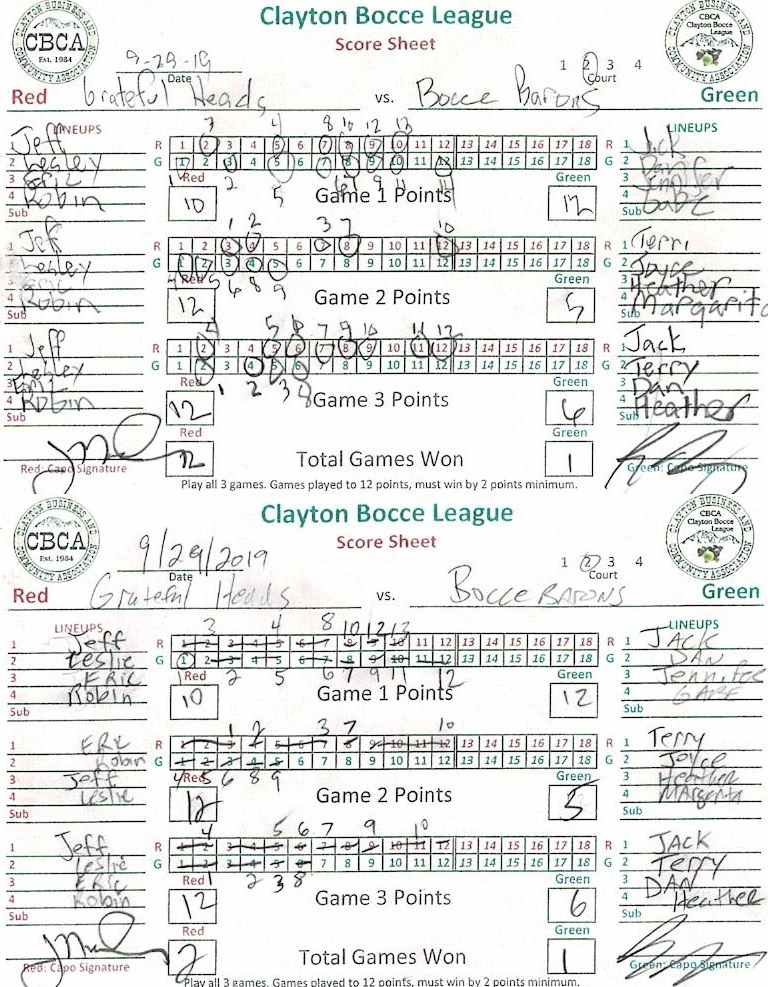 Clayton Bocce League
Score Sheet
CLAYTON BUSINESS AND COMMUNITY ASSOCIATION
CBCA
EST. 1984
CBCA
Clayton Bocce League
9-29-19
Date
1 2 3 4
Court
Red Grateful Heads vs. Bocce Barons Green
LINEUPS
Jeff
2 Lesley
3 Eric
4 Robin
Sub
3 4 8 10 12 13
R 1 2 3 4 5 6 7 8 9 10 11 12 13 14 15 16 17 18 R
G 1 2 3 4 5 6 7 8 9 10 11 12 13 14 15 16 17 18 G
1 2 5 6 7 9 11
Red Green
10 Game 1 Points 12
LINEUPS
1 Jack
2 Dan
3 Jennifer
4 Gabe
Sub
1 Jeff
2 Lesley
3 Eric
4 Robin
Sub
1 2 3 7 10
R 1 2 3 4 5 6 7 8 9 10 11 12 13 14 15 16 17 18 R
G 1 2 3 4 5 6 7 8 9 10 11 12 13 14 15 16 17 18 G
4 5 6 8 9
Red Green
12 Game 2 Points 5
1 Terri
2 Joyce
3 Heather
4 Margarita
Sub
1 Jeff
2 Lesley
3
4 Robin
Sub
4 5 6 7 9 10 11 12
R 1 2 3 4 5 6 7 8 9 10 11 12 13 14 15 16 17 18 R
G 1 2 3 4 5 6 7 8 9 10 11 12 13 14 15 16 17 18 G
1 2 3 8
Red Green
12 Game 3 Points 6
1 Jack
2 Terry
3 Dan
4 Heather
Sub
Red Green
Total Games Won 1
Red: Capo Signature
Green: Capo Signature
Play all 3 games. Games played to 12 points, must win by 2 points minimum.
Clayton Bocce League
Score Sheet
CLAYTON BUSINESS AND COMMUNITY ASSOCIATION
CBCA
EST. 1984
CBCA
Clayton Bocce League
9/29/2019
Date
1 2 3 4
Court
Red Grateful Heads vs. Bocce BARONS Green
LINEUPS
1 Jeff
2 Leslie
3 ERic
4 Robin
Sub
3 4 8 10 12 13
R 1 2 3 4 5 6 7 8 9 10 11 12 13 14 15 16 17 18 R
G 1 2 3 4 5 6 7 8 9 10 11 12 13 14 15 16 17 18 G
1 2 5 6 7 9 11 12
Red Green
10 Game 1 Points 12
LINEUPS
1 JACK
2 DAN
3 Jennifer
4 GABE
Sub
1 ERic
2 Robin
3 Jeff
4 Leslie
Sub
1 2 3 7 10
R 1 2 3 4 5 6 7 8 9 10 11 12 13 14 15 16 17 18 R
G 1 2 3 4 5 6 7 8 9 10 11 12 13 14 15 16 17 18 G
4 5 6 8 9
Red Green
12 Game 2 Points 5
1 Terry
2 Joyce
3 Heather
4 MArgerita
Sub
1 Jeff
2 Leslie
3 ERic
4 Robin
Sub
4 5 6 7 9 10
R 1 2 3 4 5 6 7 8 9 10 11 12 13 14 15 16 17 18 R
G 1 2 3 4 5 6 7 8 9 10 11 12 13 14 15 16 17 18 G
1 2 3 8
Red Green
12 Game 3 Points 6
1 JACK
2 Terry
3 DAN
4 Heather
Sub
Red Green
2 Total Games Won 1
Red: Capo Signature
Green: Capo Signature
Play all 3 games. Games played to 12 points, must win by 2 points minimum.